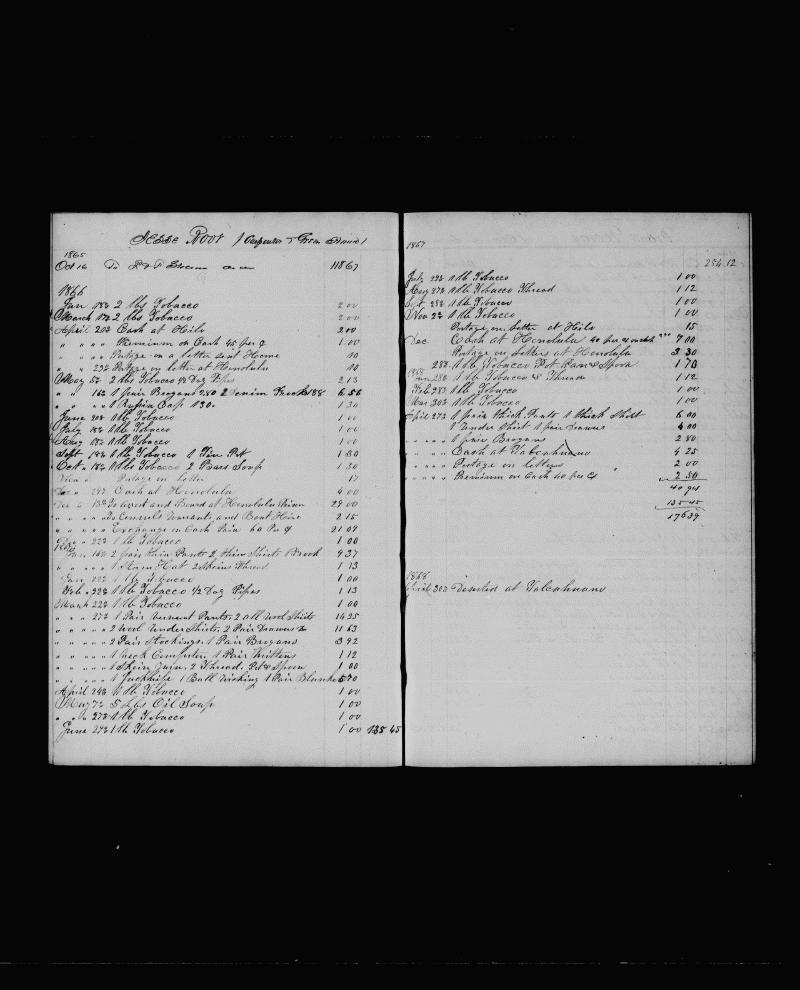 Jesse Root / Carpenter & Green Hand /
1865
Oct 16 To 118 67
1866
Jan 18th 2 lbs Tobacco 2 00
March 17th 2 lbs Tobacco 2 00
April 20th Cash at Hilo 2 00
" " " Premium on Cash 45 per c 1 00
" " " Postage on a letter sent Home 10
" " 23d Postage on letter at Honolulu 10
May 5th 2 lbs Tobacco ½ Doz Pipes 2 13
" " 16th 1 pair Brogans 2.80 2 Denim Frocks 6 56
" " " 1 Russia Cap 1 30. 1 30
June 20th 1 lb Tobacco 1 00
July 18th 1 lb Tobacco 1 00
Aug 18th 1 lb Tobacco 1 00
Sept 19th 1 lb Tobacco 1 Tin Pot 1 30
Oct 18th 1 lb Tobacco 2 Bars Soap 1 30
Postage on Letter 17
Cash at Honolulu 4 00
Dec " and Board at Honolulu 29 00
" " " " To Consuls and Boat Hire 2 15
" " " " Exchange on Cash Paid 60 Per c 21 09
" " 22d 1 lb Tobacco 1 00
1867
Jan 16th 2 pair thin Pants 2 thin Shirts 1 Frock 9 37
" " " " 1 Straw Hat 2 Skeins Thread 1 13
Jan 22d 1 lb Tobacco 1 00
Feb 22d 1 lb Tobacco ½ Doz Pipes 1 13
March 22d 1 lb Tobacco 1 00
" " " 27th 1 Pair Pants. 2 all Wool Shirts 14 25
" " " " 2 Wool Under Shirts. 2 Pair Drawers 11 63
" " " " 2 Pair Stockings. 1 Pair Brogans 3 92
" " " " 1 Neck Comforter 1 Pair Mittens 1 12
" " " " 1 Skein Yarn. 2 Thread. Pot & Spoon 1 00
" " " " 1 Jacknife 1 Ball Wicking 1 Pair Blankets 5 70
April 24th 1 lb Tobacco 1 00
May 7th 5 Lbs Oil Soap 1 00
" " " 27th 1 lb Tobacco 1 00
June 29th 1 lb Tobacco 1 00 135 45
1867
254 12
July 29th 1 lb Tobacco 1 00
Aug 27th 1 lb Tobacco Thread 1 12
Sept 25th 1 lb Tobacco 1 00
Nov 2d 1 lb Tobacco 1 00
Postage on Letter at Hilo 15
Dec Cash at Honolulu 40 per c 7 00
Postage on Letters at Honolulu 3 30
28th 1 lb Tobacco Pot Pan & Spoon 1 70
1868
Jan 28th 1 lb Tobacco & Thread 1 12
Feb 28th 1 lb Tobacco 1 00
Mar 30th 1 lb Tobacco 1 00
April 27th 1 pair thick Pants 1 thick Shirt 6 00
" " " " 1 Under Shirt 1 pair Drawers 4 00
" " " " 1 pair Brogans 2 80
" " " " Cash at Talcahuano 4 25
" " " " Postage on letters 2 00
" " " " Premium on Cash 40 per c 2 50
40 94
135 45
176 39
1868
April 30th Deserted at Talcahuano